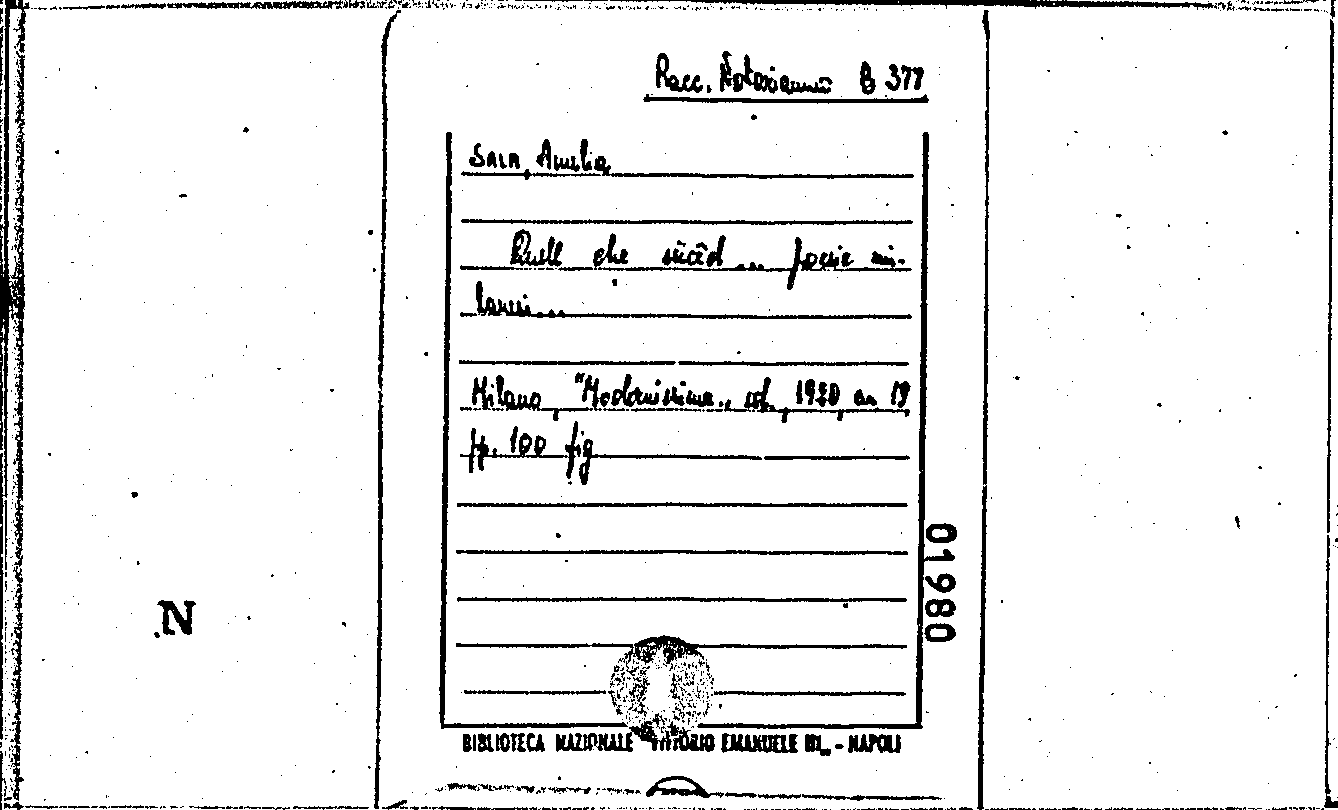 Racc. B 377
SALA, Amelia
Quell che sücêd ... poesie mi-
lanesi...
Milano, "Modernissima„ 19
pp. 100 fig
01980
N
BIBLIOTECA NAZIONALE VITTORIO EMANUELE III„ - NAPOLI